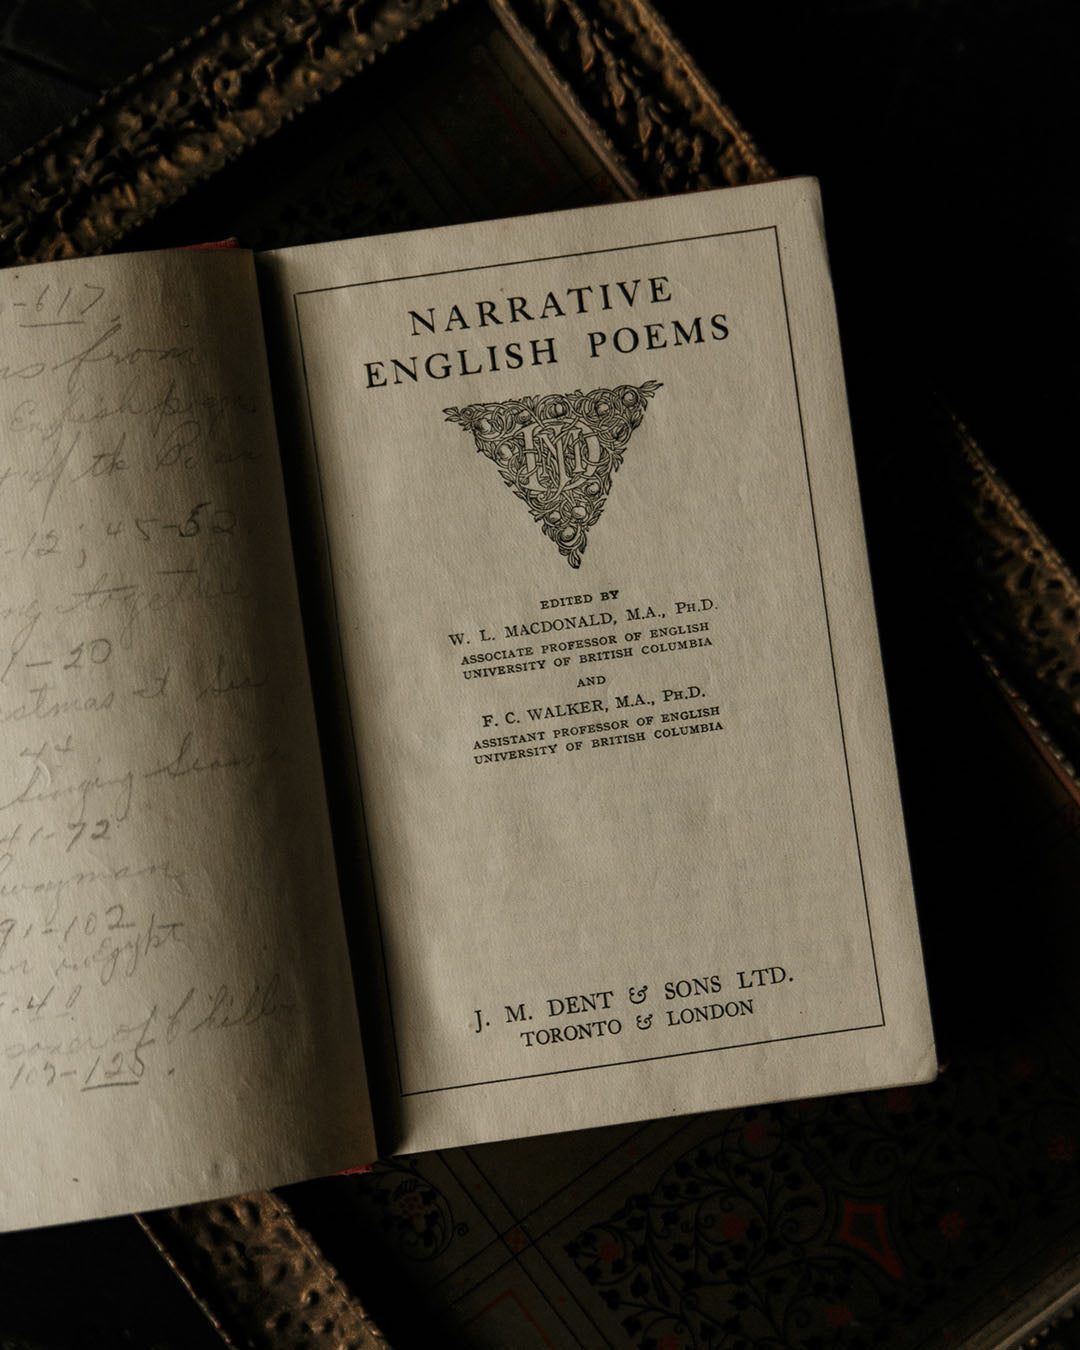 -617
from
English
of the
-12; 45-52
together
-20
Singing
41-72
91-102
in Egypt
of Chillon
109-125.
NARRATIVE
ENGLISH POEMS
JMD
EDITED BY
W. L. MACDONALD, M.A., PH.D.
ASSOCIATE PROFESSOR OF ENGLISH
UNIVERSITY OF BRITISH COLUMBIA
AND
F. C. WALKER, M.A., PH.D.
ASSISTANT PROFESSOR OF ENGLISH
UNIVERSITY OF BRITISH COLUMBIA
J. M. DENT & SONS LTD.
TORONTO & LONDON